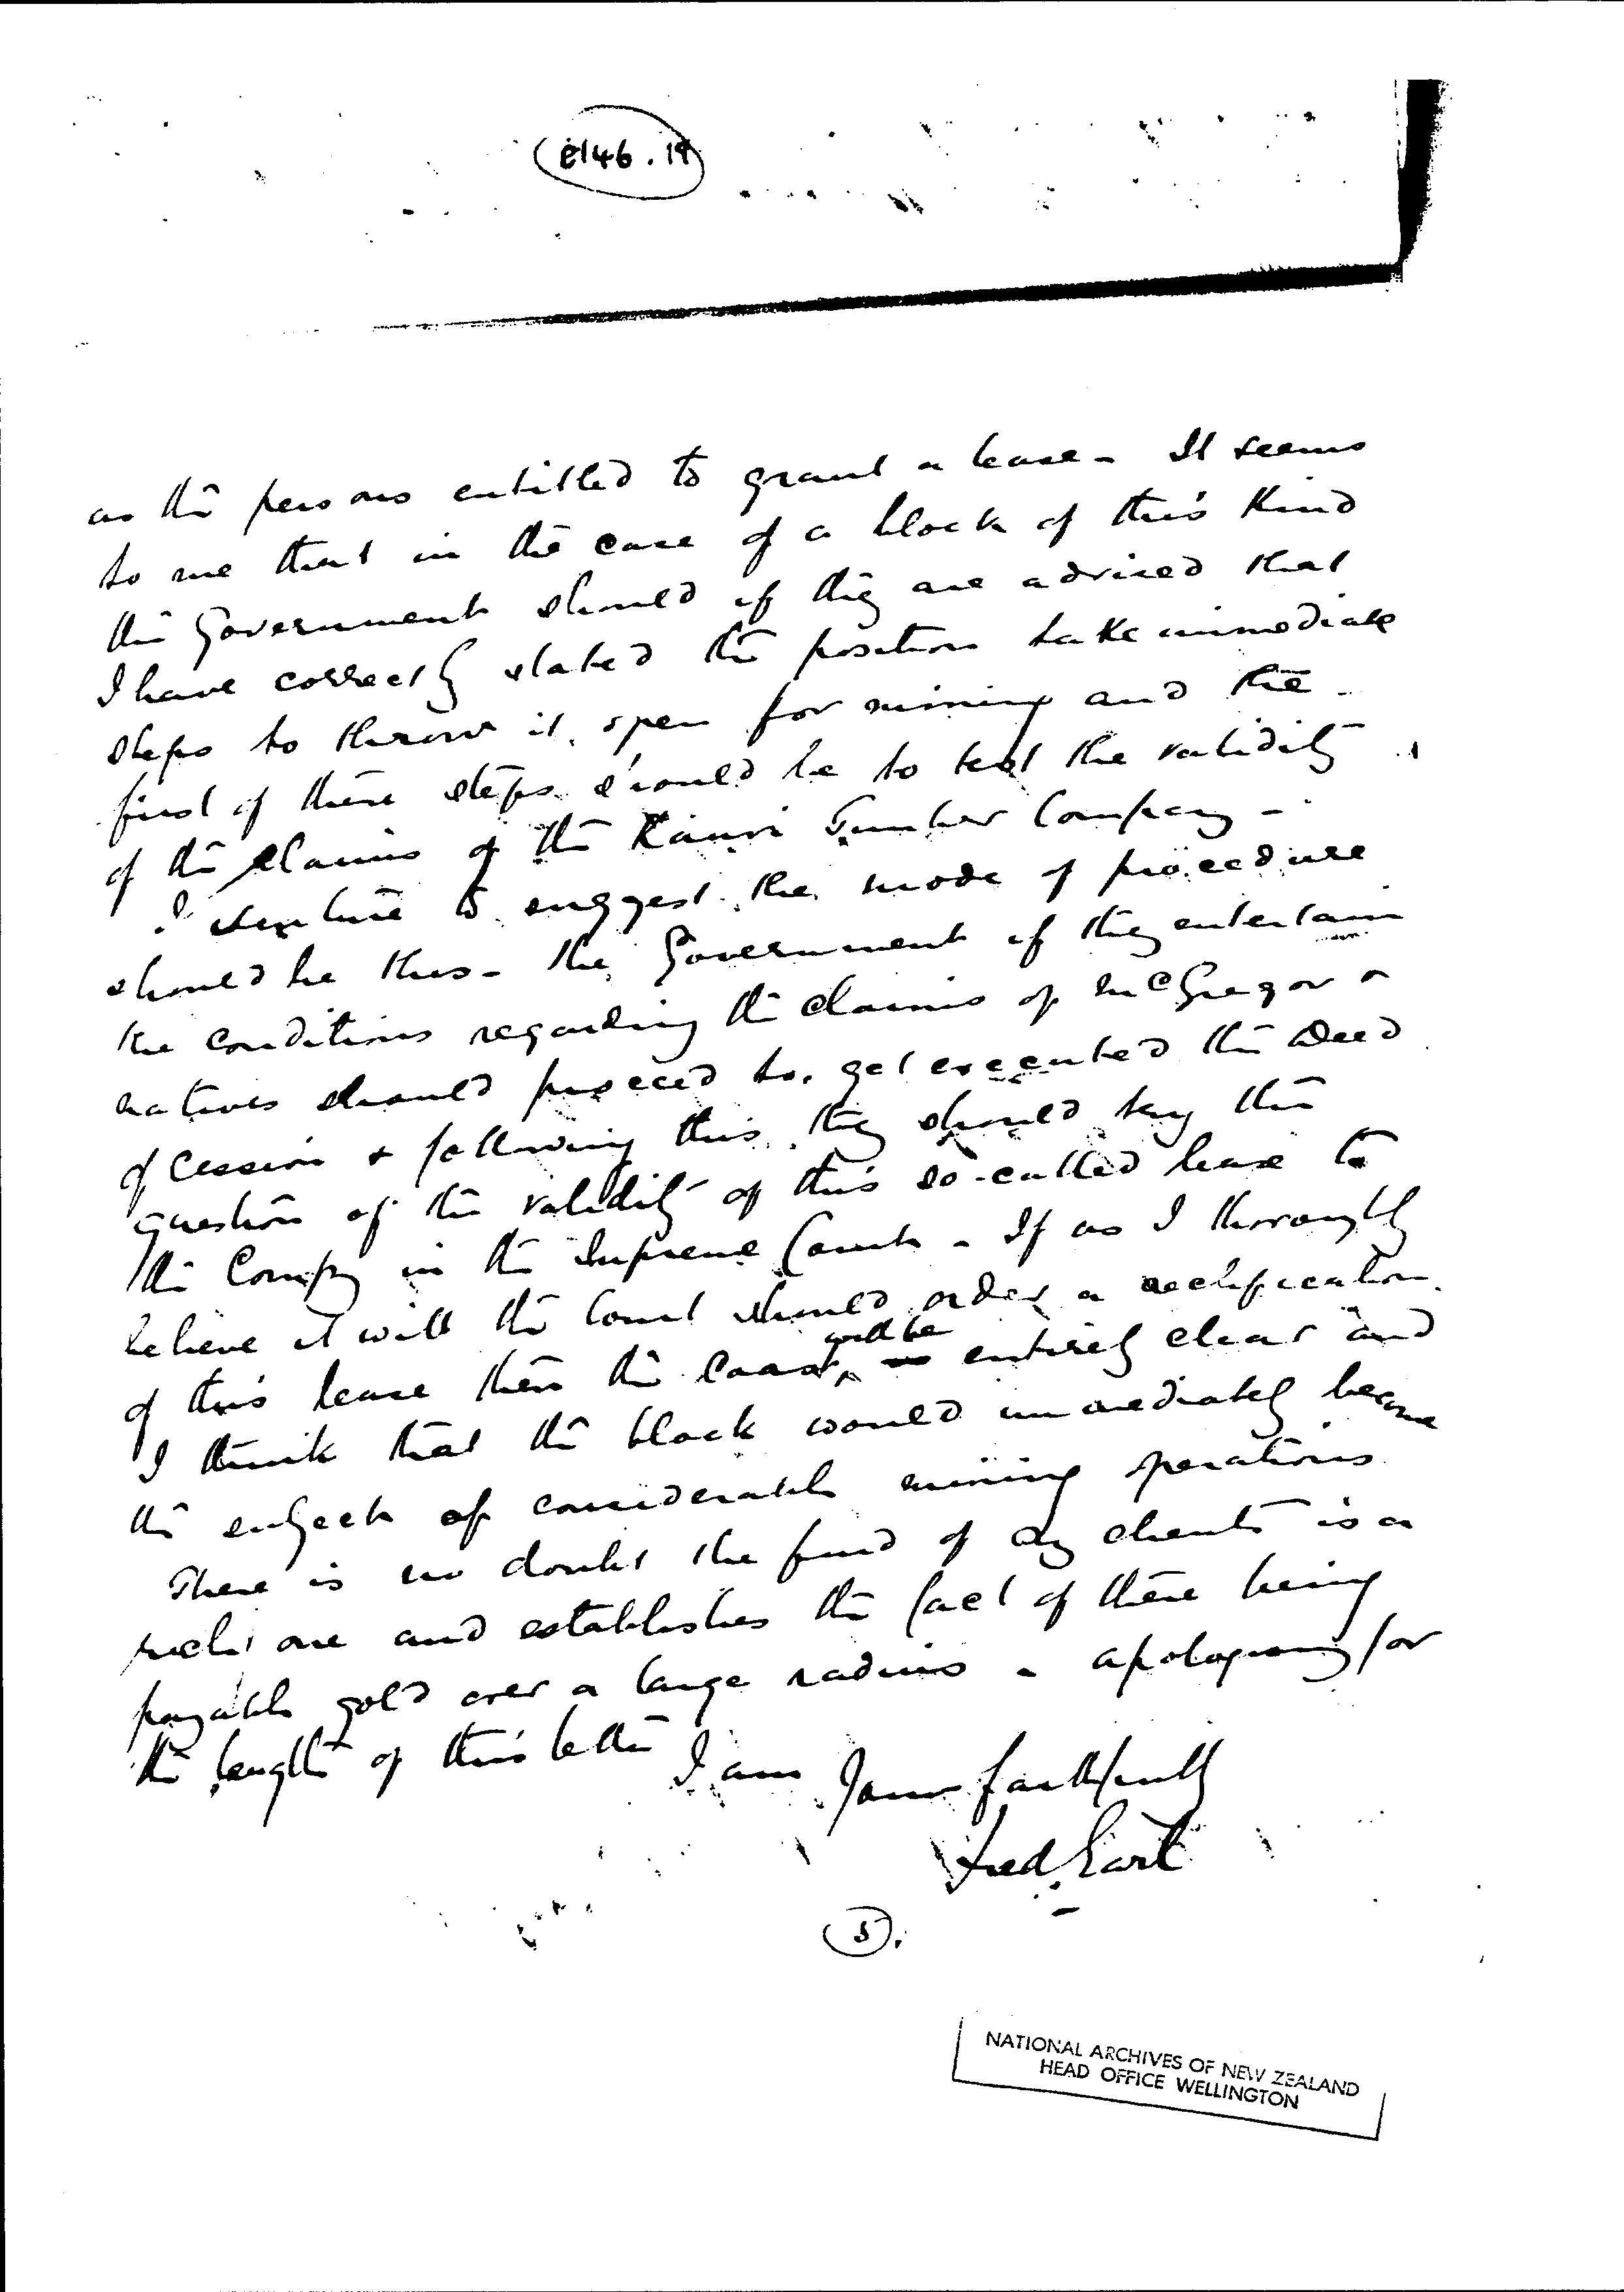 E146.19
as the persons entitled to grant a lease - It seems
to me that in the case of a block of this kind
the Government should if they are advised that
I have correctly stated the position take immediate
steps to throw it open for mining and the
first of these steps should be to test the validity
of the claims of the Kauri Timber Company -
I venture to suggest the mode of procedure
should be this - the Government if they entertain
the conditions regarding the claims of McGregor &
natives should proceed to get executed the Deed
of Cession & following this they should try the
question of the validity of this so-called lease to
the Compy in the Supreme Court - If as I thoroughly
believe it will the Court should order a rectification
of this lease then the coast will be entirely clear and
I think that the block would immediately become
the subject of considerable mining operations
There is no doubt the find of my clients is a
rich one and establishes the fact of there being
payable gold over a large radius - apologising for
the length of this letter
I am Yours faithfully
Fred Earl
5.
NATIONAL ARCHIVES OF NEW ZEALAND
HEAD OFFICE WELLINGTON